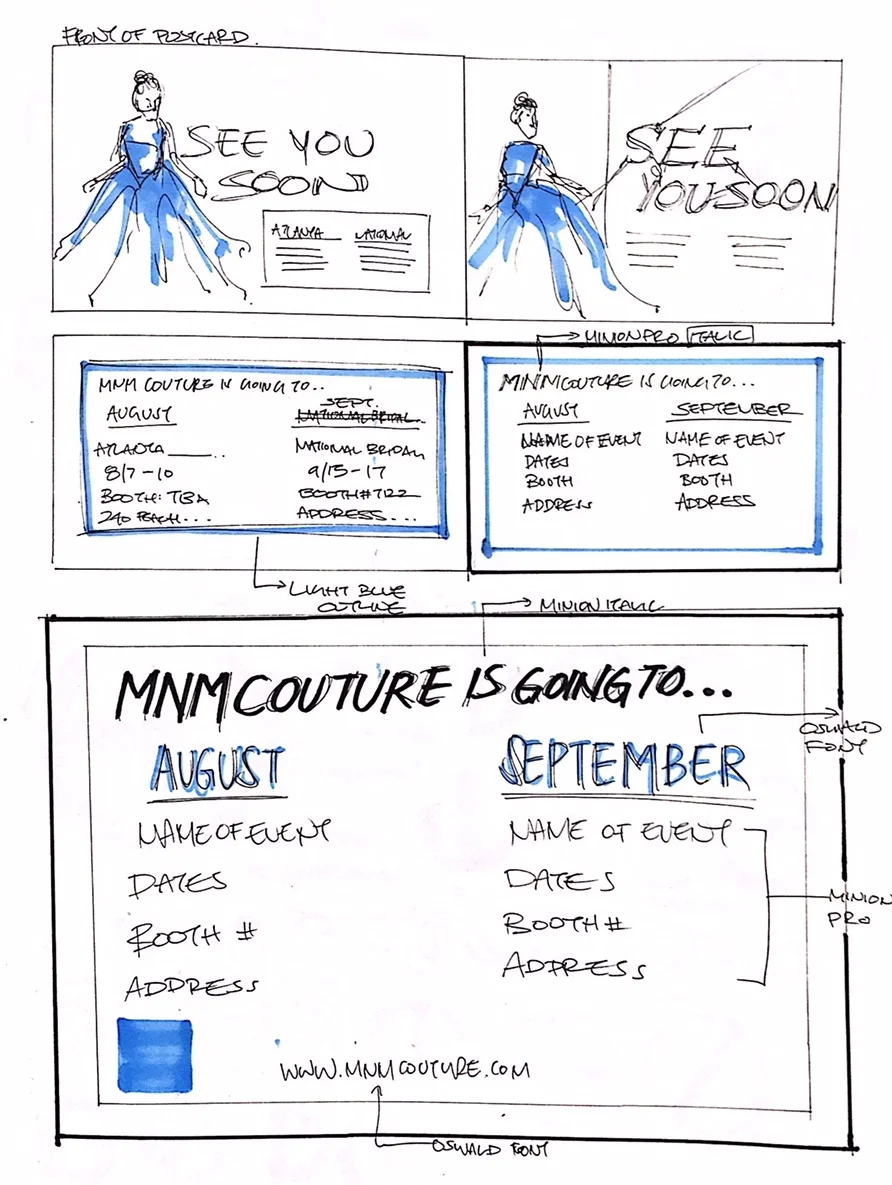 FRONT OF POSTCARD.
SEE YOU
SOON
ATLANTA NATIONAL
SEE
YOU SOON
MINION PRO ITALIC
MNM COUTURE IS GOING TO..
AUGUST
SEPT.
NATIONAL BRIDAL
ATLANTA
NATIONAL BRIDAL
8/7-10
9/15-17
BOOTH: TBA
BOOTH# 7122
240 PEACH...
ADDRESS...
MNM COUTURE IS GOING TO...
AUGUST SEPTEMBER
NAME OF EVENT NAME OF EVENT
DATES DATES
BOOTH BOOTH
ADDRESS ADDRESS
LIGHT BLUE
OUTLINE
MINION ITALIC
MNM COUTURE IS GOING TO...
OSWALD
FONT
AUGUST SEPTEMBER
NAME OF EVENT NAME OF EVENT
DATES DATES
BOOTH # BOOTH #
ADDRESS ADDRESS
MINION
PRO
WWW.MNMCOUTURE.COM
OSWALD FONT